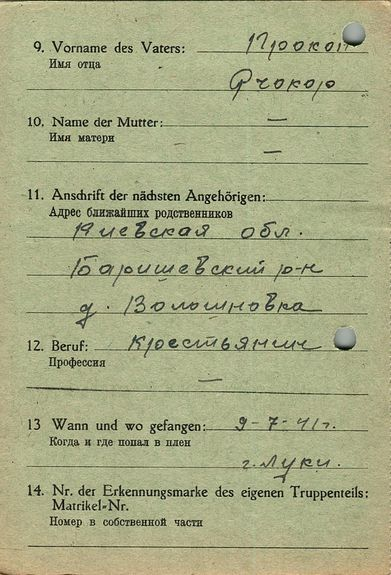 9. Vorname des Vaters: Прокоп
Имя отца
10. Name der Mutter: —
Имя матери
—
11. Anschrift der nächsten Angehörigen:
Адрес ближайших родственников
Киевская обл.
Баришевский р-н
д. Волошновка
12. Beruf: Крестьянин
Профессия
—
13 Wann und wo gefangen: 9-7-41г.
Когда и где попал в плен
г. Луки.
14. Nr. der Erkennungsmarke des eigenen Truppenteils:
Matrikel-Nr.
Номер в собственной части